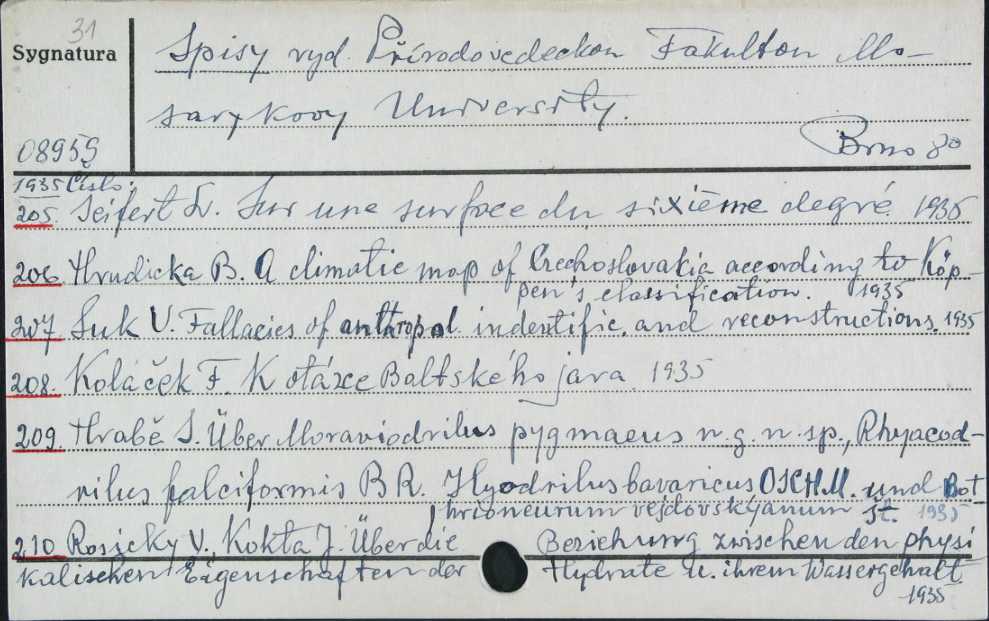 31
Sygnatura
Spisy vyd. Přírodovedeckou Fakultou Ma-
sarykovy University.
08959
Brno 80
1935 Číslo:
205. Seifert L. Sur une surface du sixième degré. 1935
206. Hrudicka B. A climatic map of Czechoslovakia according to Köp-
pen's classification. 1935
207 Suk V. Fallacies of anthropol. indentific. and reconstructions. 1935
208. Koláček F. K otázce Baltského jara. 1935
209. Hrabě S. Über Moraviodrilus pygmaeus n.g. n.sp., Rhyacod-
rilus falciformis BR. Ilyodrilus bavaricus OSCHM. und Bot
hrioneurum vejdovskyanum St. 1935
210 Rosicky V., Kokta J. Über die Beziehung zwischen den physi
kalischen Eigenschaften der Hydrate u. ihrem Wassergehalt.
1935